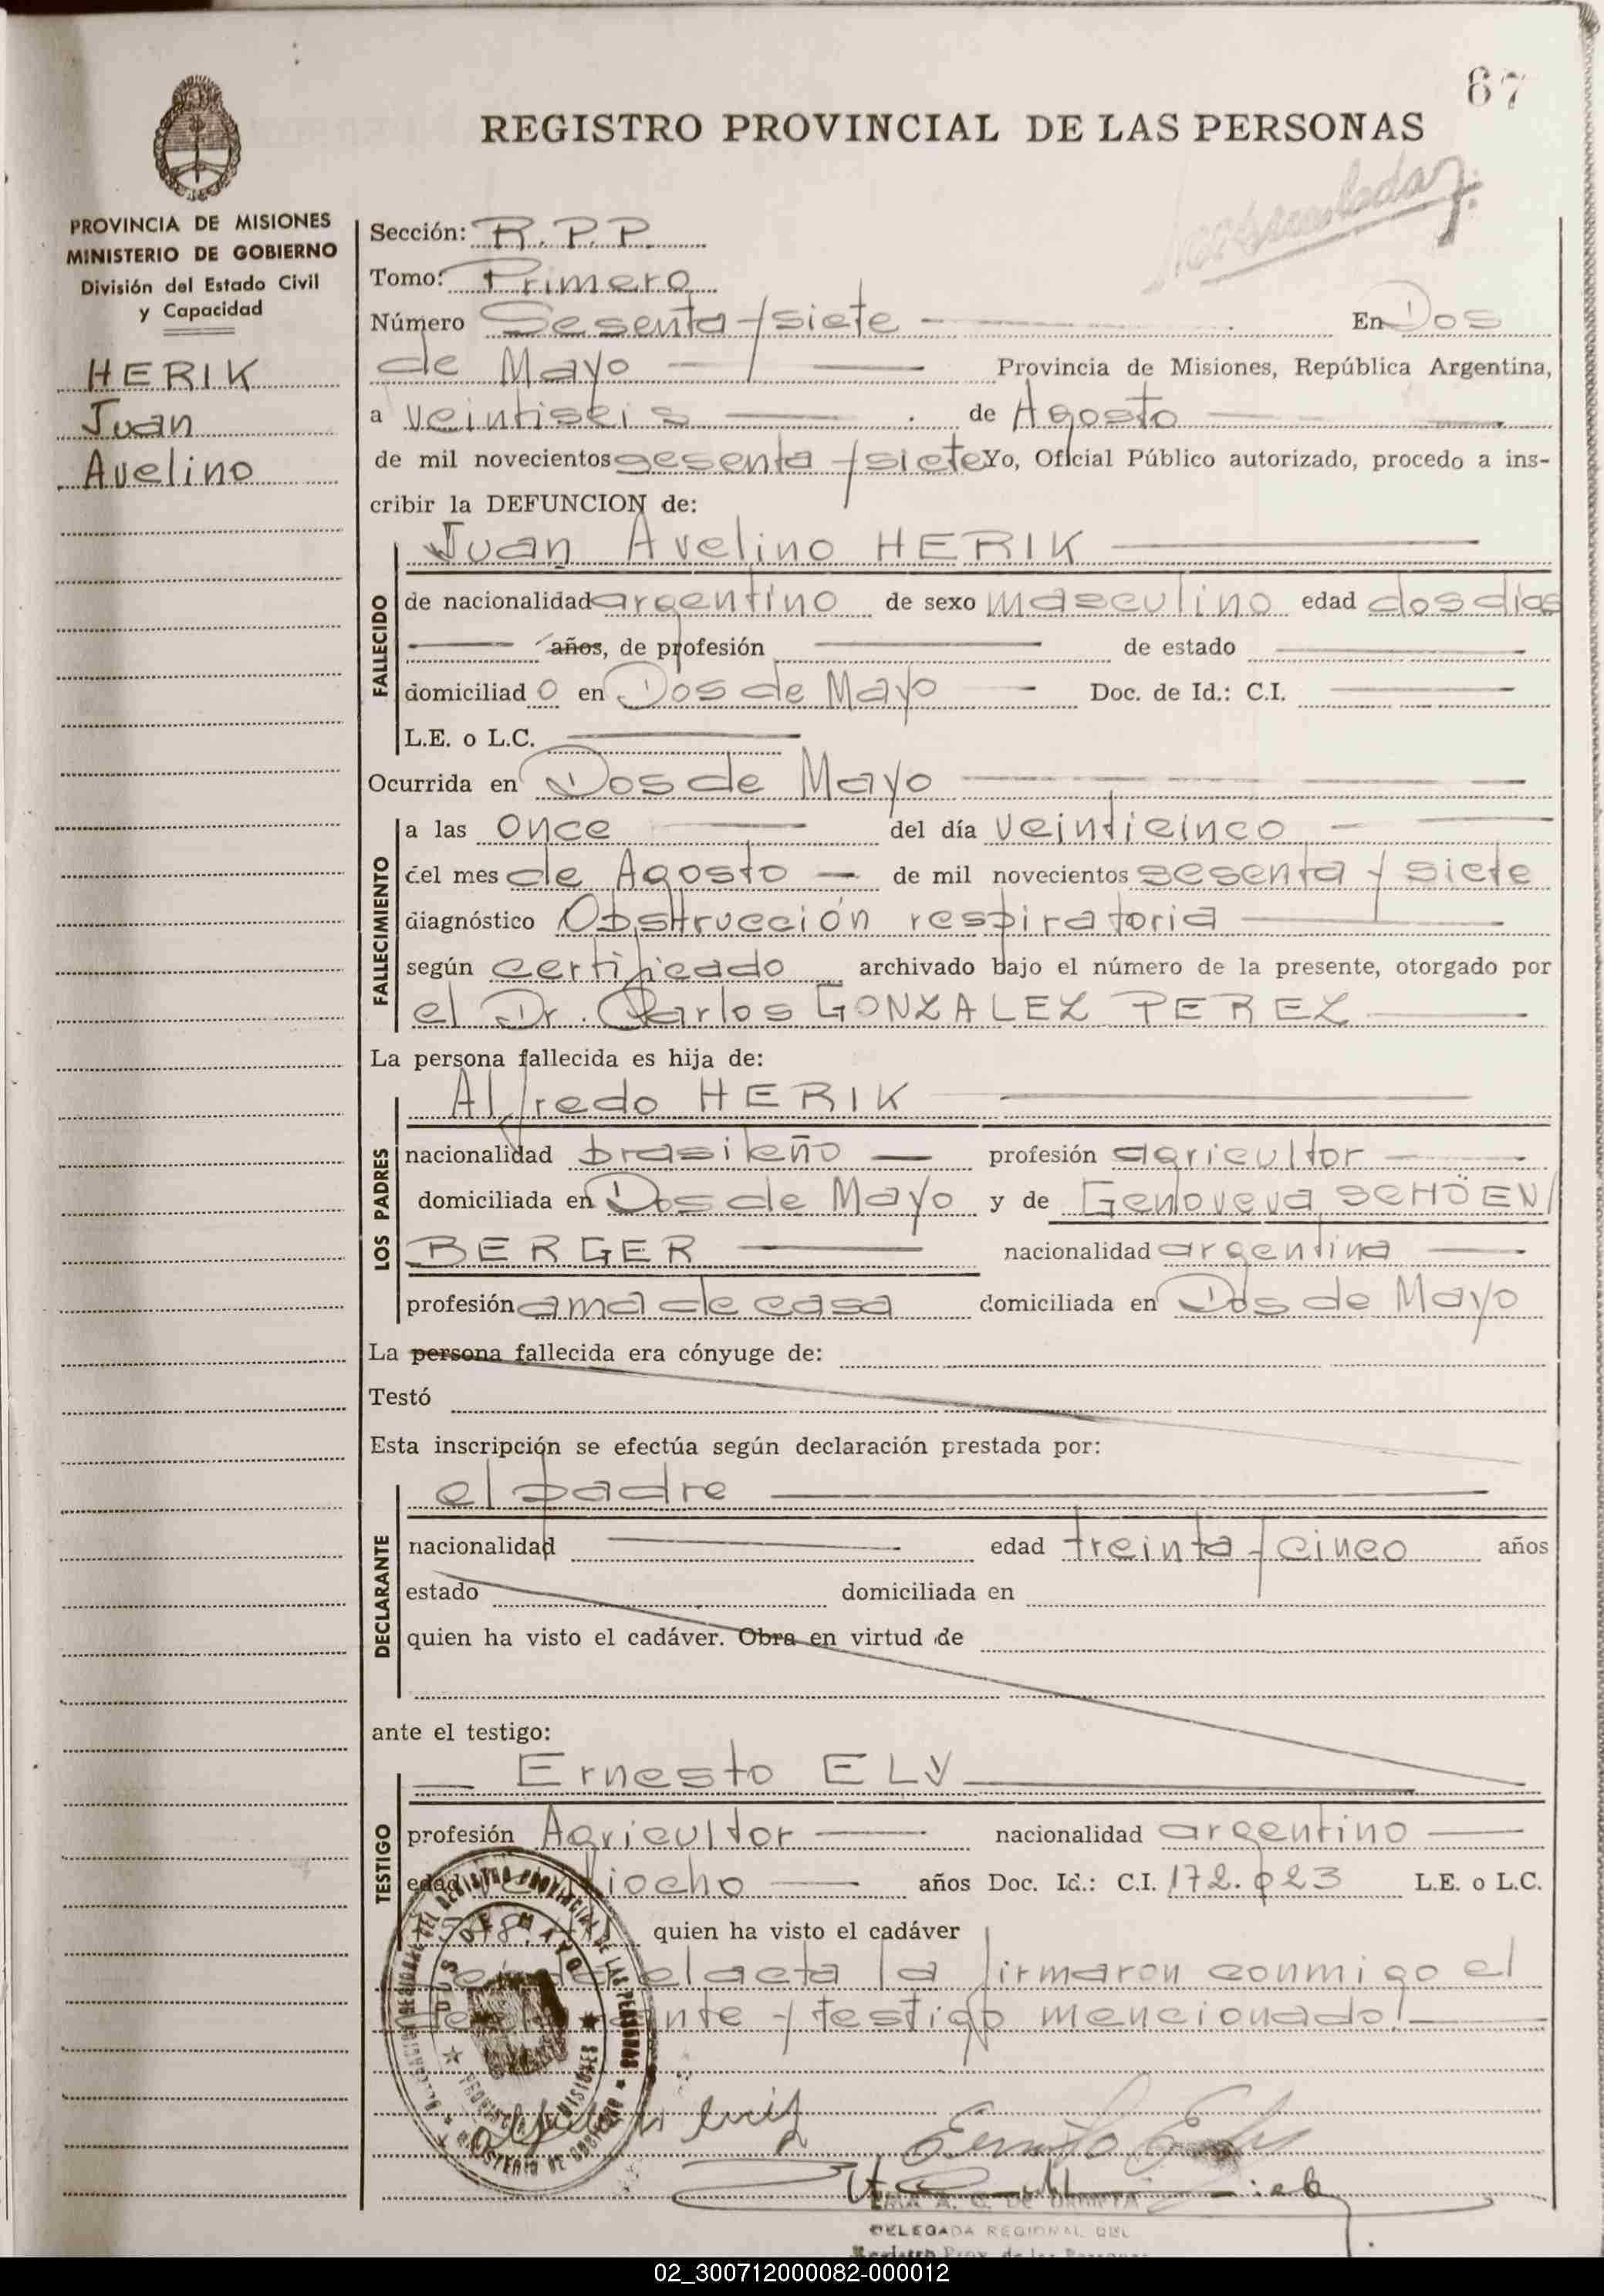 67
REGISTRO PROVINCIAL DE LAS PERSONAS
PROVINCIA DE MISIONES
MINISTERIO DE GOBIERNO
División del Estado Civil
y Capacidad
HERIK
Juan
Avelino
Sección: R.P.P.
Tomo: Primero
Número Sesenta y siete En Dos
de Mayo Provincia de Misiones, República Argentina,
a veintiseis de Agosto
de mil novecientos sesenta y siete Yo, Oficial Público autorizado, procedo a ins-
cribir la DEFUNCION de:
Juan Avelino HERIK
FALLECIDO
de nacionalidad argentino de sexo masculino edad dos dias
años, de profesión de estado
domiciliado en Dos de Mayo Doc. de Id.: C.I.
L.E. o L.C.
Ocurrida en Dos de Mayo
FALLECIMIENTO
a las once del día veinticinco
del mes de Agosto de mil novecientos sesenta y siete
diagnóstico Obstrucción respiratoria
según certificado archivado bajo el número de la presente, otorgado por
el Dr. Carlos GONZALEZ PEREZ
La persona fallecida es hija de:
Alfredo HERIK
LOS PADRES
nacionalidad brasileño profesión agricultor
domiciliada en Dos de Mayo y de Genoveva SCHÖEN/
BERGER nacionalidad argentina
profesión ama de casa domiciliada en Dos de Mayo
La persona fallecida era cónyuge de:
Testó
Esta inscripción se efectúa según declaración prestada por:
el padre
DECLARANTE
nacionalidad edad treinta y cinco años
estado domiciliada en
quien ha visto el cadáver. Obra en virtud de
ante el testigo:
Ernesto ELY
TESTIGO
profesión Agricultor nacionalidad argentino
edad años Doc. Id.: C.I. 172.023 L.E. o L.C.
quien ha visto el cadáver
el acta la firmaron conmigo el
y testigo mencionado!
DOS DE MAYO
DELEGADA REGIONAL DEL
02_300712000082-000012